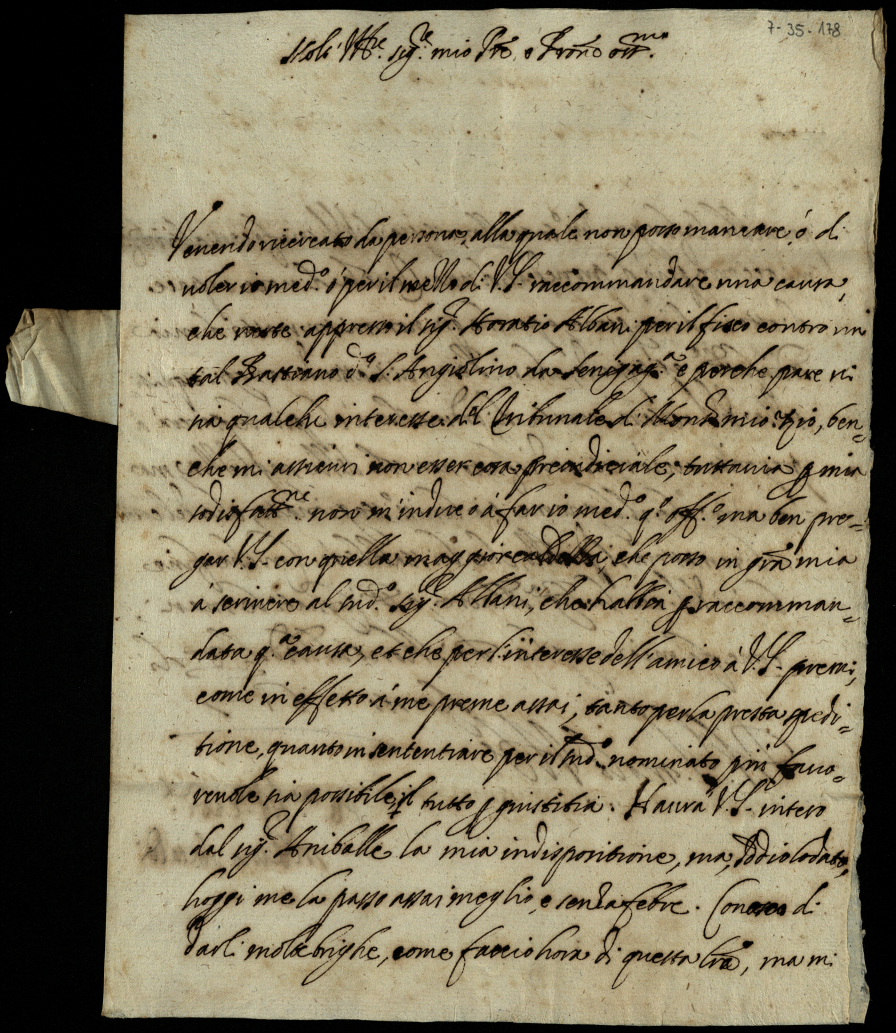 7-35-178
Molt' Ill.re sig.re mio P̃re e P̃rõne oss.mo
Venendo ricercato da persona, alla quale non posso mancare, ò di
voler io med.o ò per il mezzo di V.S. raccommandare una causa,
che verte appresso il sig.r Horatio Albani per il fisco contro un
tal Bastiano d.o S. Angiolino da Senigag.a e perche pare vi
sia qualche interesse del Tribunale di Mons.r mio Zio, ben-
che mi assicuri non esser cosa preiudiciale, tuttavia p mia
sodisfatt.ne non m'induco à far io med.o q.o off.o ma ben pre-
gar V.S. con quella maggior caldezza, che posso in grã mia
à scrivere al sud.o sig.r Albani, che habbia p raccomman-
data q.a causa, et che per l'interesse dell'amico à V.S. prema,
come in effetto à me preme assai, tanto per la presta spedi-
tione, quanto in sententiare per il sud.o nominato più favo-
revole sia possibile, il tutto p giustitia. Havrà V.S. inteso
dal sig.r Aniballe la mia indispositione, ma, Iddio lodato,
hoggi me la passo assai meglio, e senza febre. Conosco di
darli molte brighe, come faccio hora di questa lrã, ma mi